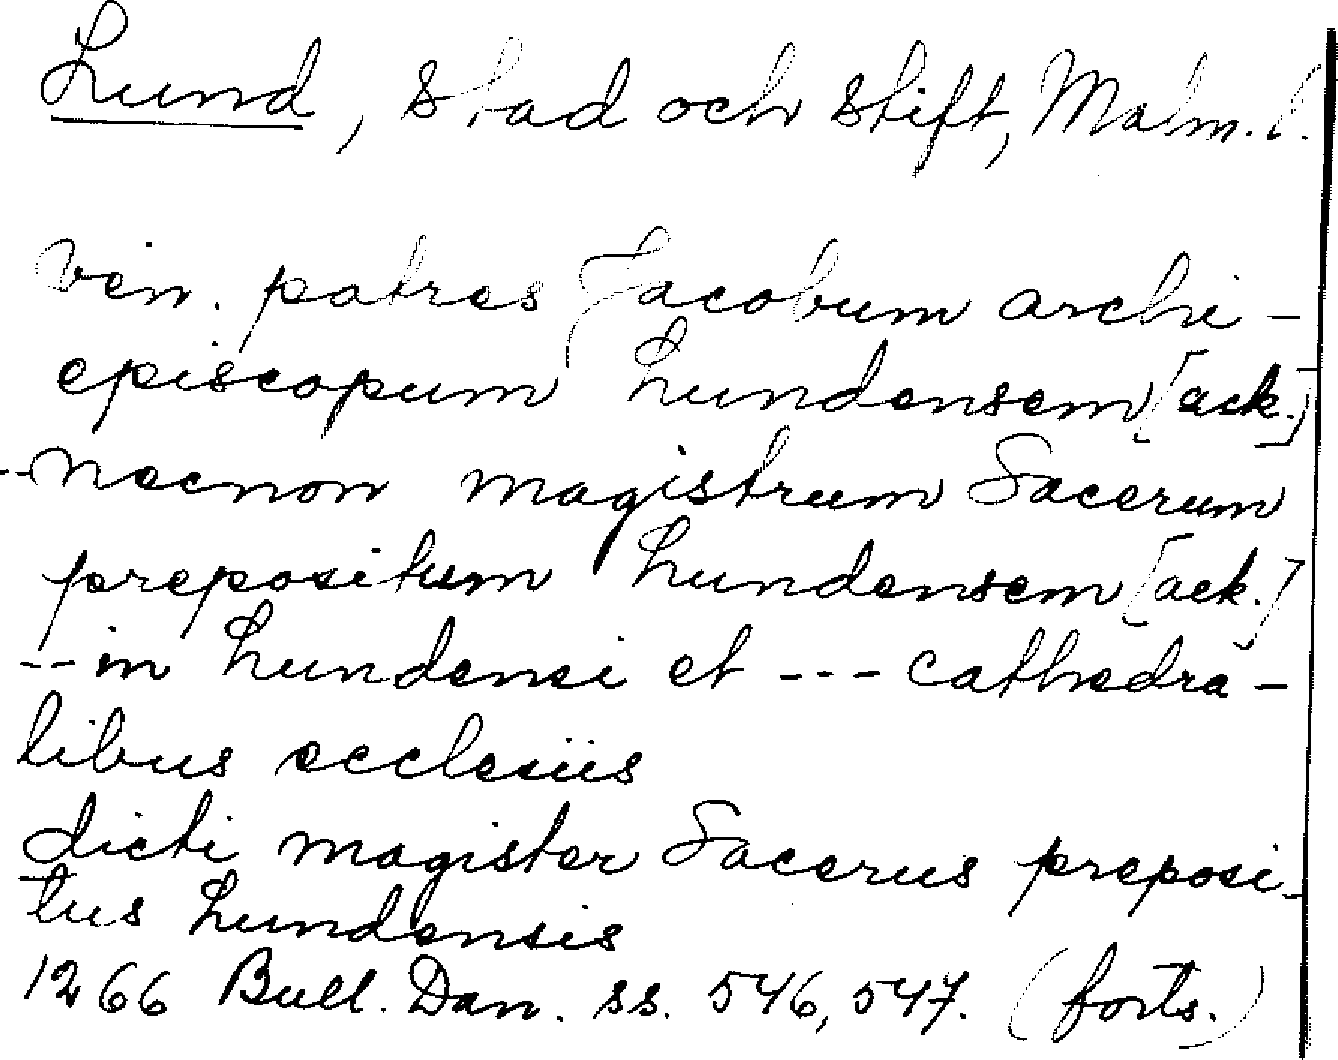 Lund, Stad och Stift, Malm. l.
ven. patres Jacobum archi-
episcopum Lundensem [ack.]
-- necnon magistrum Sacerum
prepositum Lundensem [ack.]
-- in Lundensi et --- cathedra-
libus ecclesiis
dicti magister Sacerus preposi-
tus Lundensis
1266 Bull. Dan. ss. 546, 547. (forts.)